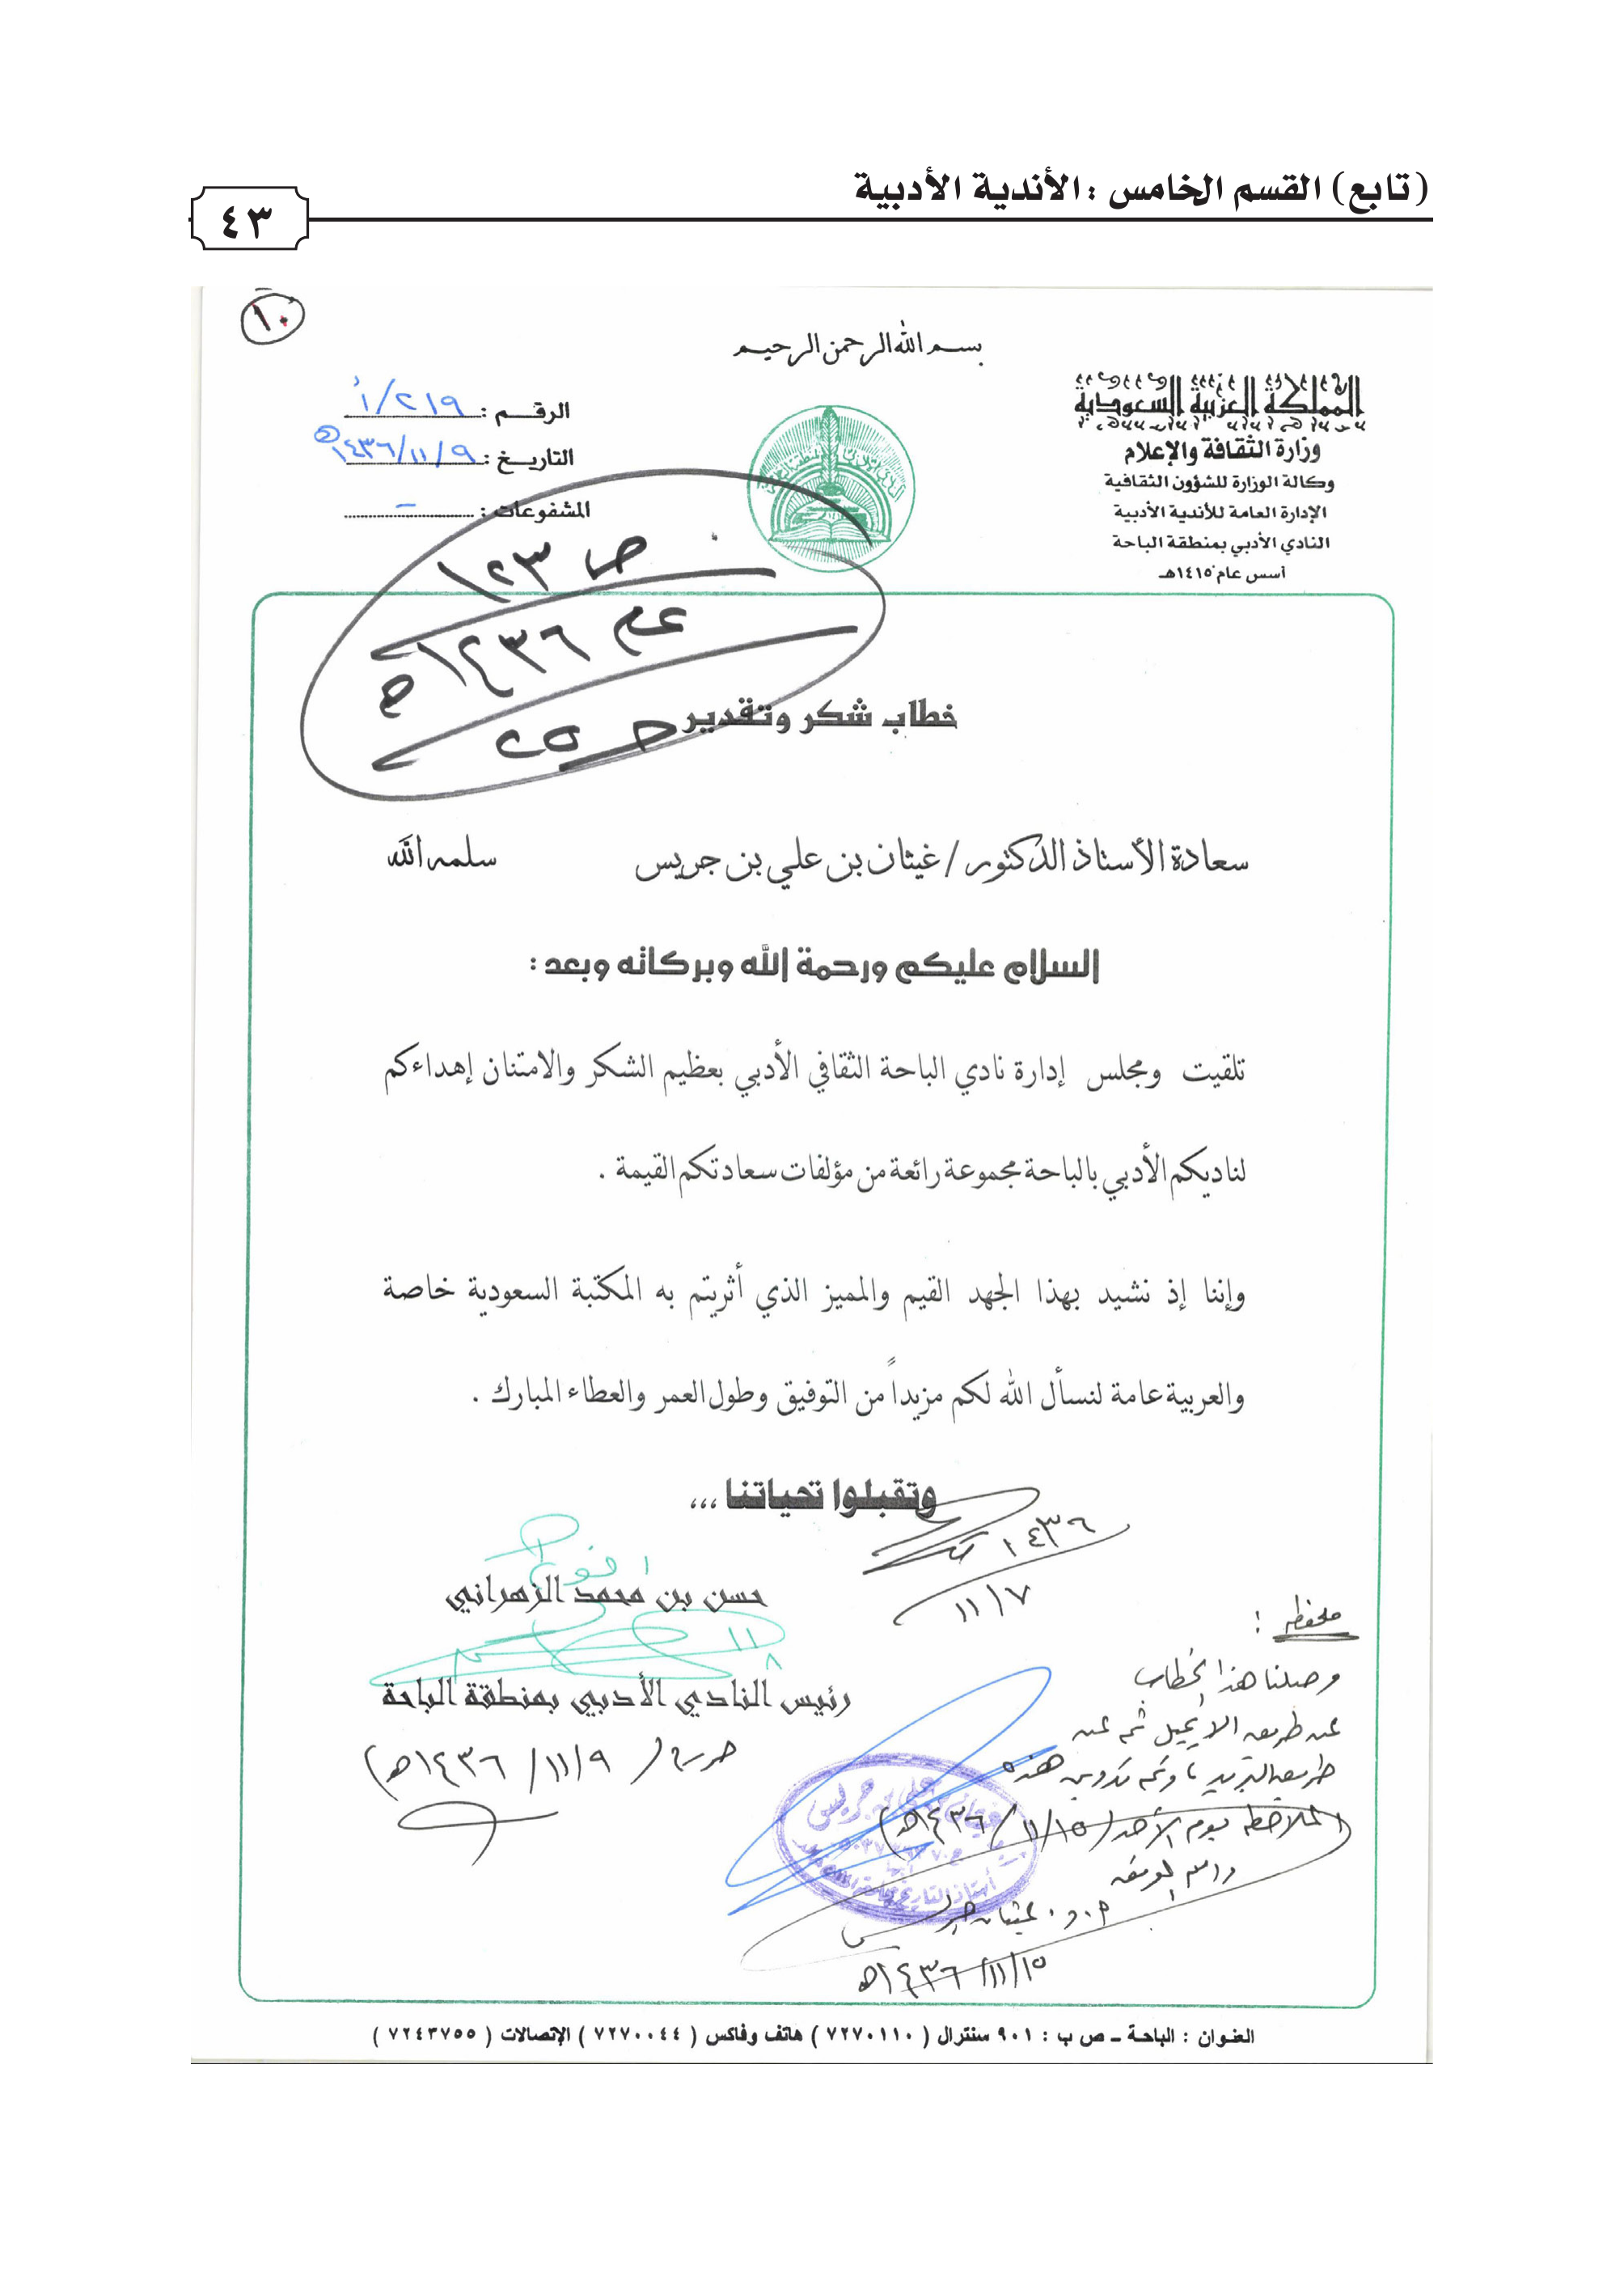 (تابع) القسم الخامس : الأندية الأدبية
٤٣
١٠
بسم الله الرحمن الرحيم
المملكة العربية السعودية
وزارة الثقافة والإعلام
وكالة الوزارة للشؤون الثقافية
الإدارة العامة للأندية الأدبية
النادي الأدبي بمنطقة الباحة
أسس عام ١٤١٥هـ
الرقــم : ٢١٩/أ
التاريــخ : ١٤٣٦/١١/٩هـ
المشفوعات : -
ص ١٢٣
عام ١٤٣٦هـ
خطاب شكر وتقدير
سعادة الأستاذ الدكتور / غيثان بن علي بن جريس سلمه الله
السلام عليكم ورحمة الله وبركاته وبعد :
تلقيت ومجلس إدارة نادي الباحة الثقافي الأدبي بعظيم الشكر والامتنان إهداءكم
لناديكم الأدبي بالباحة مجموعة رائعة من مؤلفات سعادتكم القيمة .
وإننا إذ نشيد بهذا الجهد القيم والمميز الذي أثريتم به المكتبة السعودية خاصة
والعربية عامة لنسأل الله لكم مزيداً من التوفيق وطول العمر والعطاء المبارك .
وتقبلوا تحياتنا ,,,
١٤٣٦
١١/٧
حسن بن محمد الزهراني
رئيس النادي الأدبي بمنطقة الباحة
١٤٣٦/١١/٩هـ)
ملحظه :
وصلنا هذا الخطاب
عن طريق الايميل ثم عن
طريق البريد، وتم تدوين هذه
الملاحظه يوم الأحد (١٤٣٦/١١/١٥هـ)
والله الموفق
أ.د. غيثان جريس
١٤٣٦/١١/١٥هـ
العنـوان : الباحـة ـ ص ب : ٩٠١ سنترال ( ٧٢٧٠١١٠ ) هاتف وفاكس ( ٧٢٧٠٠٤٤ ) الإتصالات ( ٧٢٤٣٧٥٥ )